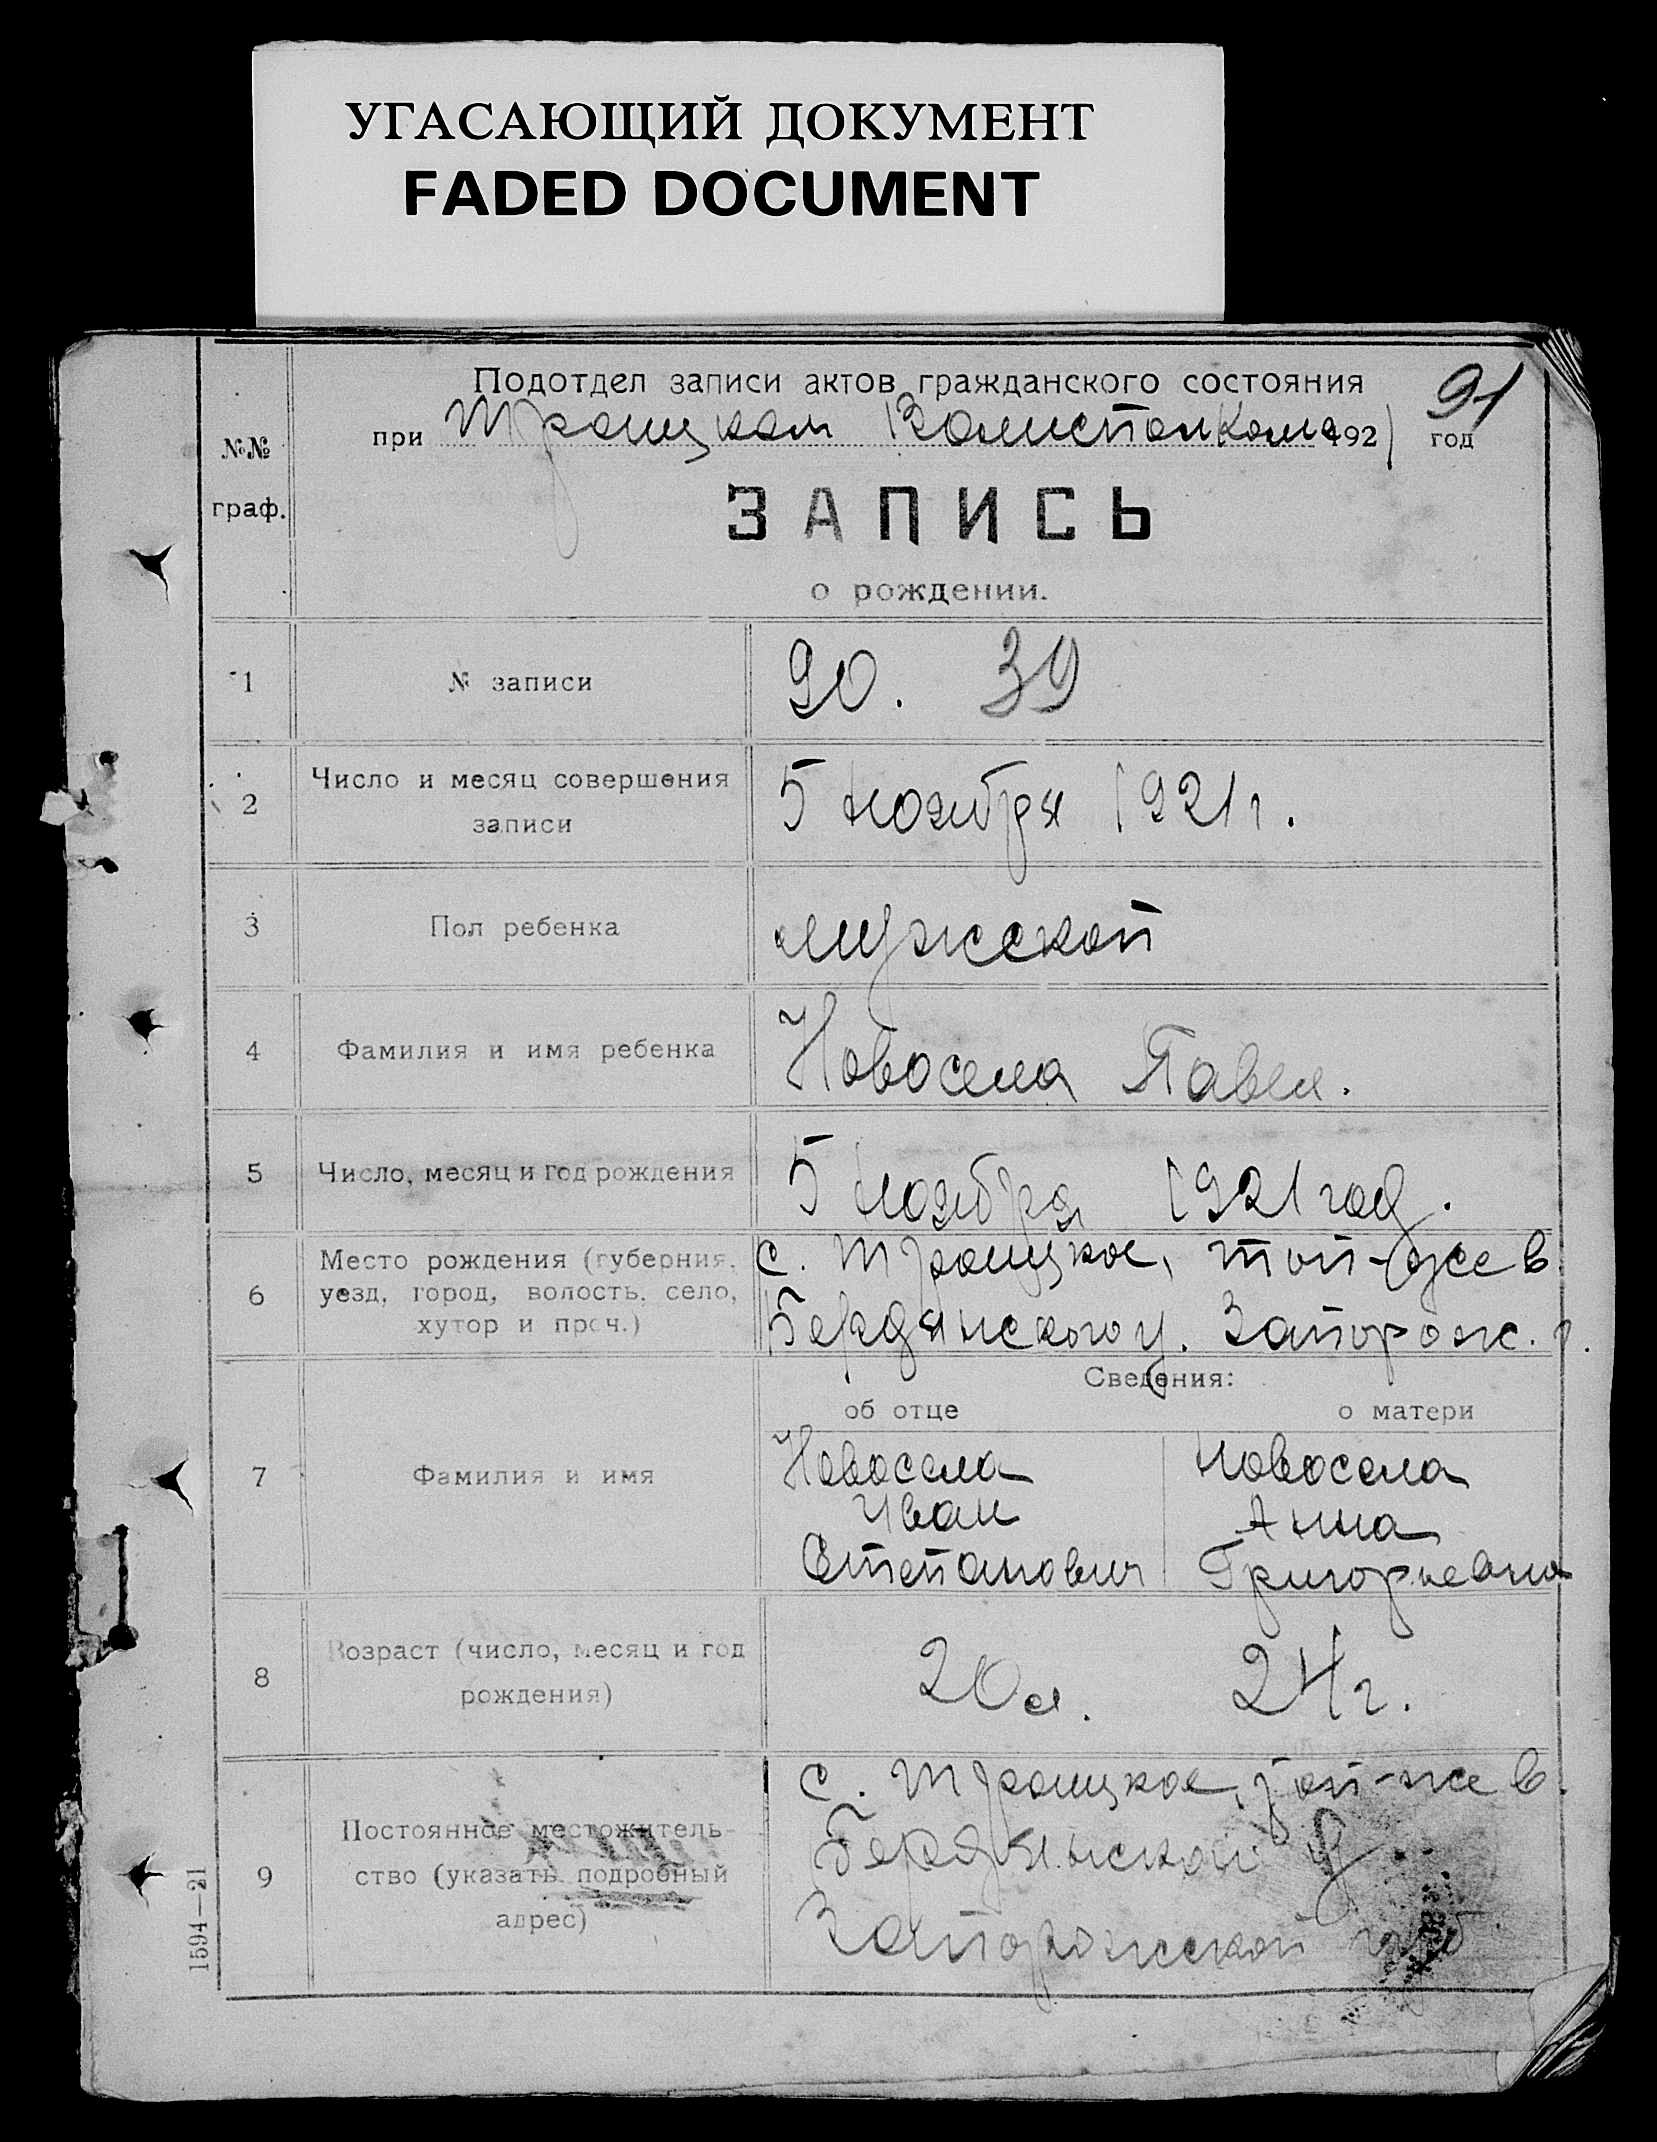 УГАСАЮЩИЙ ДОКУМЕНТ
FADED DOCUMENT
91
Подотдел записи актов гражданского состояния
при Троицком Волисполкоме 1921 год
№№
граф.
ЗАПИСЬ
о рождении.
1 № записи 90. 39
2 Число и месяц совершения
записи 5 ноября 1921 г.
3 Пол ребенка мужской
4 Фамилия и имя ребенка Новосела Павел.
5 Число, месяц и год рождения 5 ноября 1921 год.
6 Место рождения (губерния,
уезд, город, волость, село,
хутор и проч.)
с. Троицкое, той-же в.
Бердянского у. Запорож. г.
Сведения:
об отце о матери
7 Фамилия и имя
Новосела Новосела
Иван Анна
Степанович Григорьевна
8 Возраст (число, месяц и год
рождения) 20 л. 24 г.
9 Постоянное местожитель-
ство (указать подробный
адрес)
с. Троицкое, той-же в.
Бердянской у
Запорожской губ
1594—21